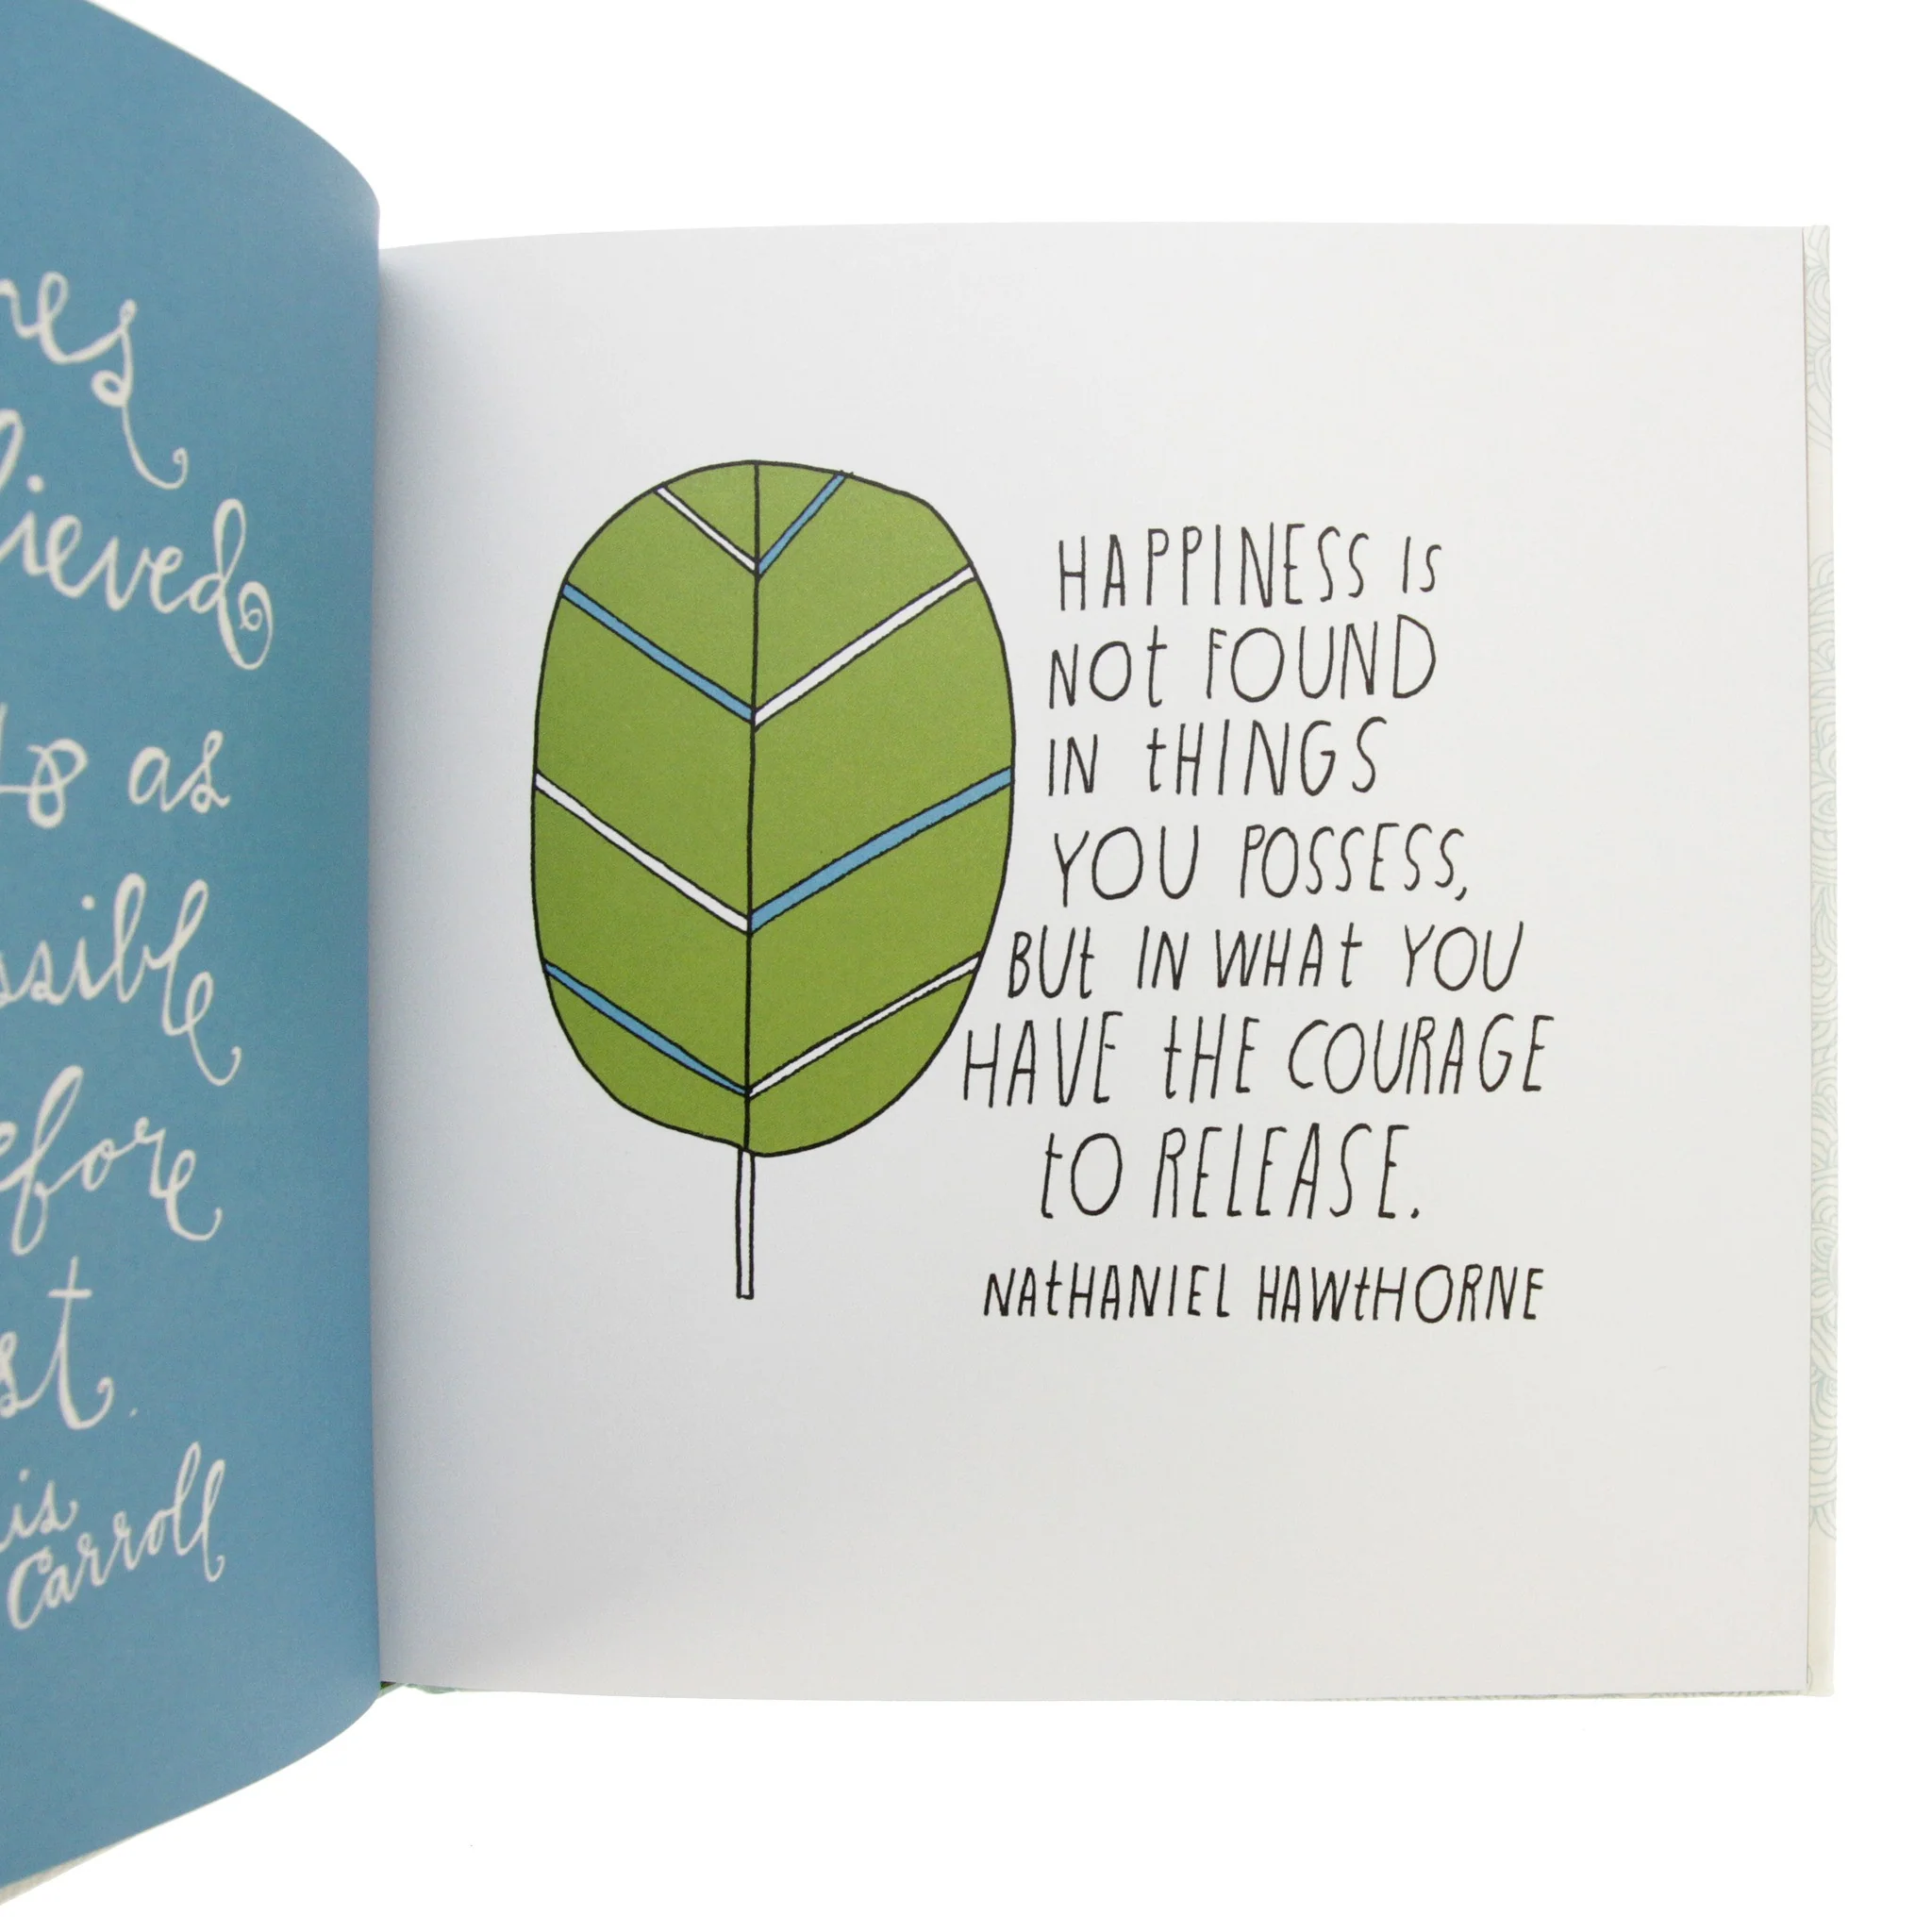 as
Carroll
HAPPINESS IS
NOt FOUND
IN tHINGS
YOU POSSESS,
BUt IN WHAt YOU
HAVE tHE COURAGE
tO RELEASE.
NAtHANIEL HAWtHORNE